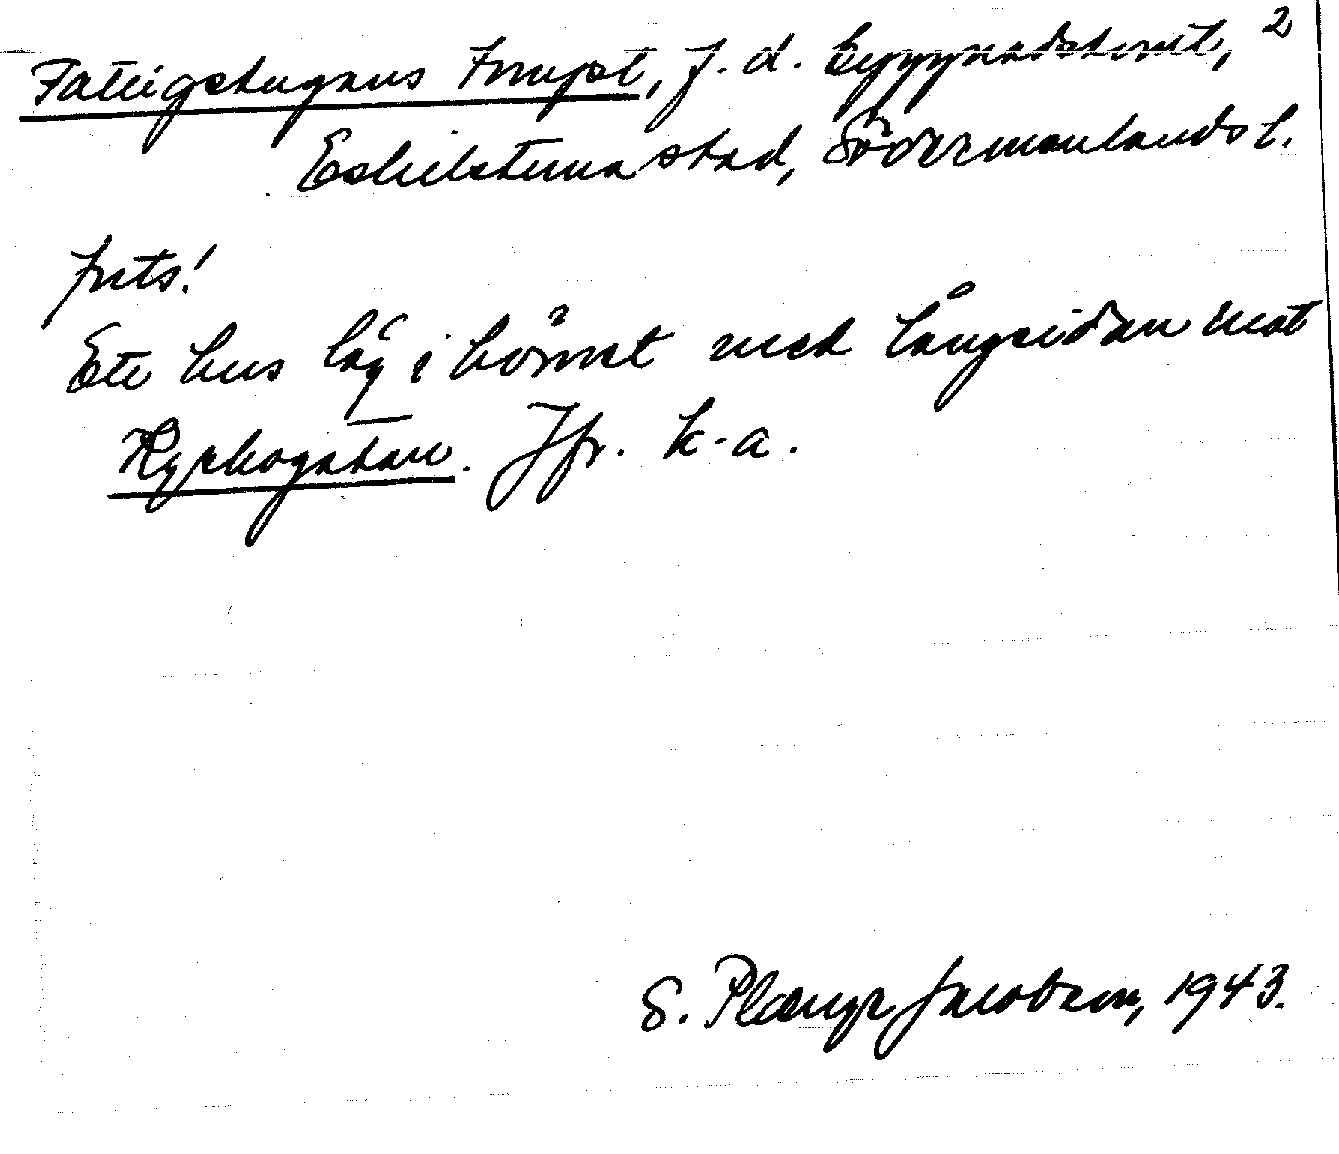 Fattigstugans Tompt, f. d. byggnadstomt, 2
Eskilstuna stad, Södermanlands l.
forts!
Ett hus låg i hörnet med långsidan mot
Kyrkogatan. Jfr. k-a.
S. Plænge Jacobson, 1943.